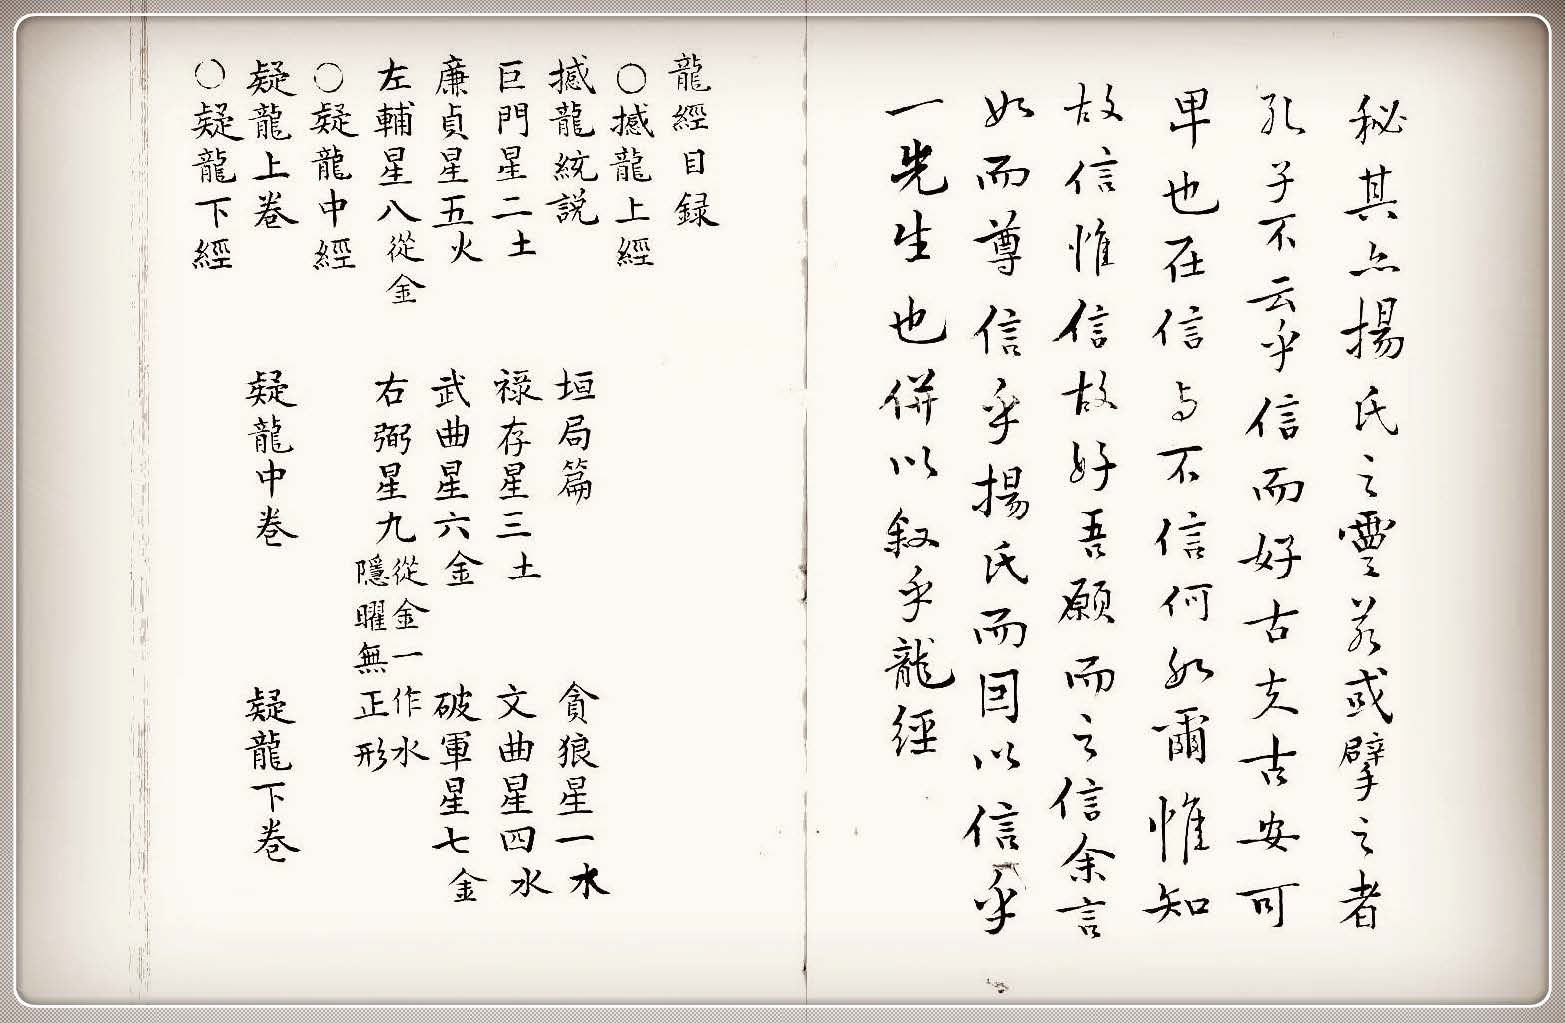 秘其亦揚氏之靈若或擘之者
孔子不云乎信而好古夫古安可
卑也在信与不信何如爾惟知
故信惟信故好吾願而之信余言
如而尊信乎揚氏而因以信乎
一先生也併以叙乎龍経
龍經目録
○撼龍上經
撼龍統説 垣局篇 貪狼星一水
巨門星二土 禄存星三土 文曲星四水
廉貞星五火 武曲星六金 破軍星七金
左輔星八從金 右弼星九從金一作水隱曜無正形
○疑龍中經
疑龍上巻 疑龍中巻 疑龍下巻
○疑龍下經